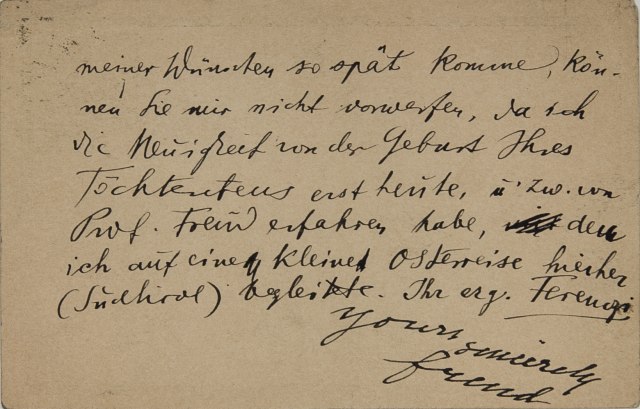 meiner Wünschen so spät komme, kön-
nen Sie mir nicht vorwerfen, da ich
die Neuigkeit von der Geburt Ihres
Töchterchens erst heute, u. zw. von
Prof. Freud erfahren habe, dem
ich auf einer kleinen Osterreise hieher
(Südtirol) begleitete. Ihr erg. Ferenczi
Yours sincerely
freud